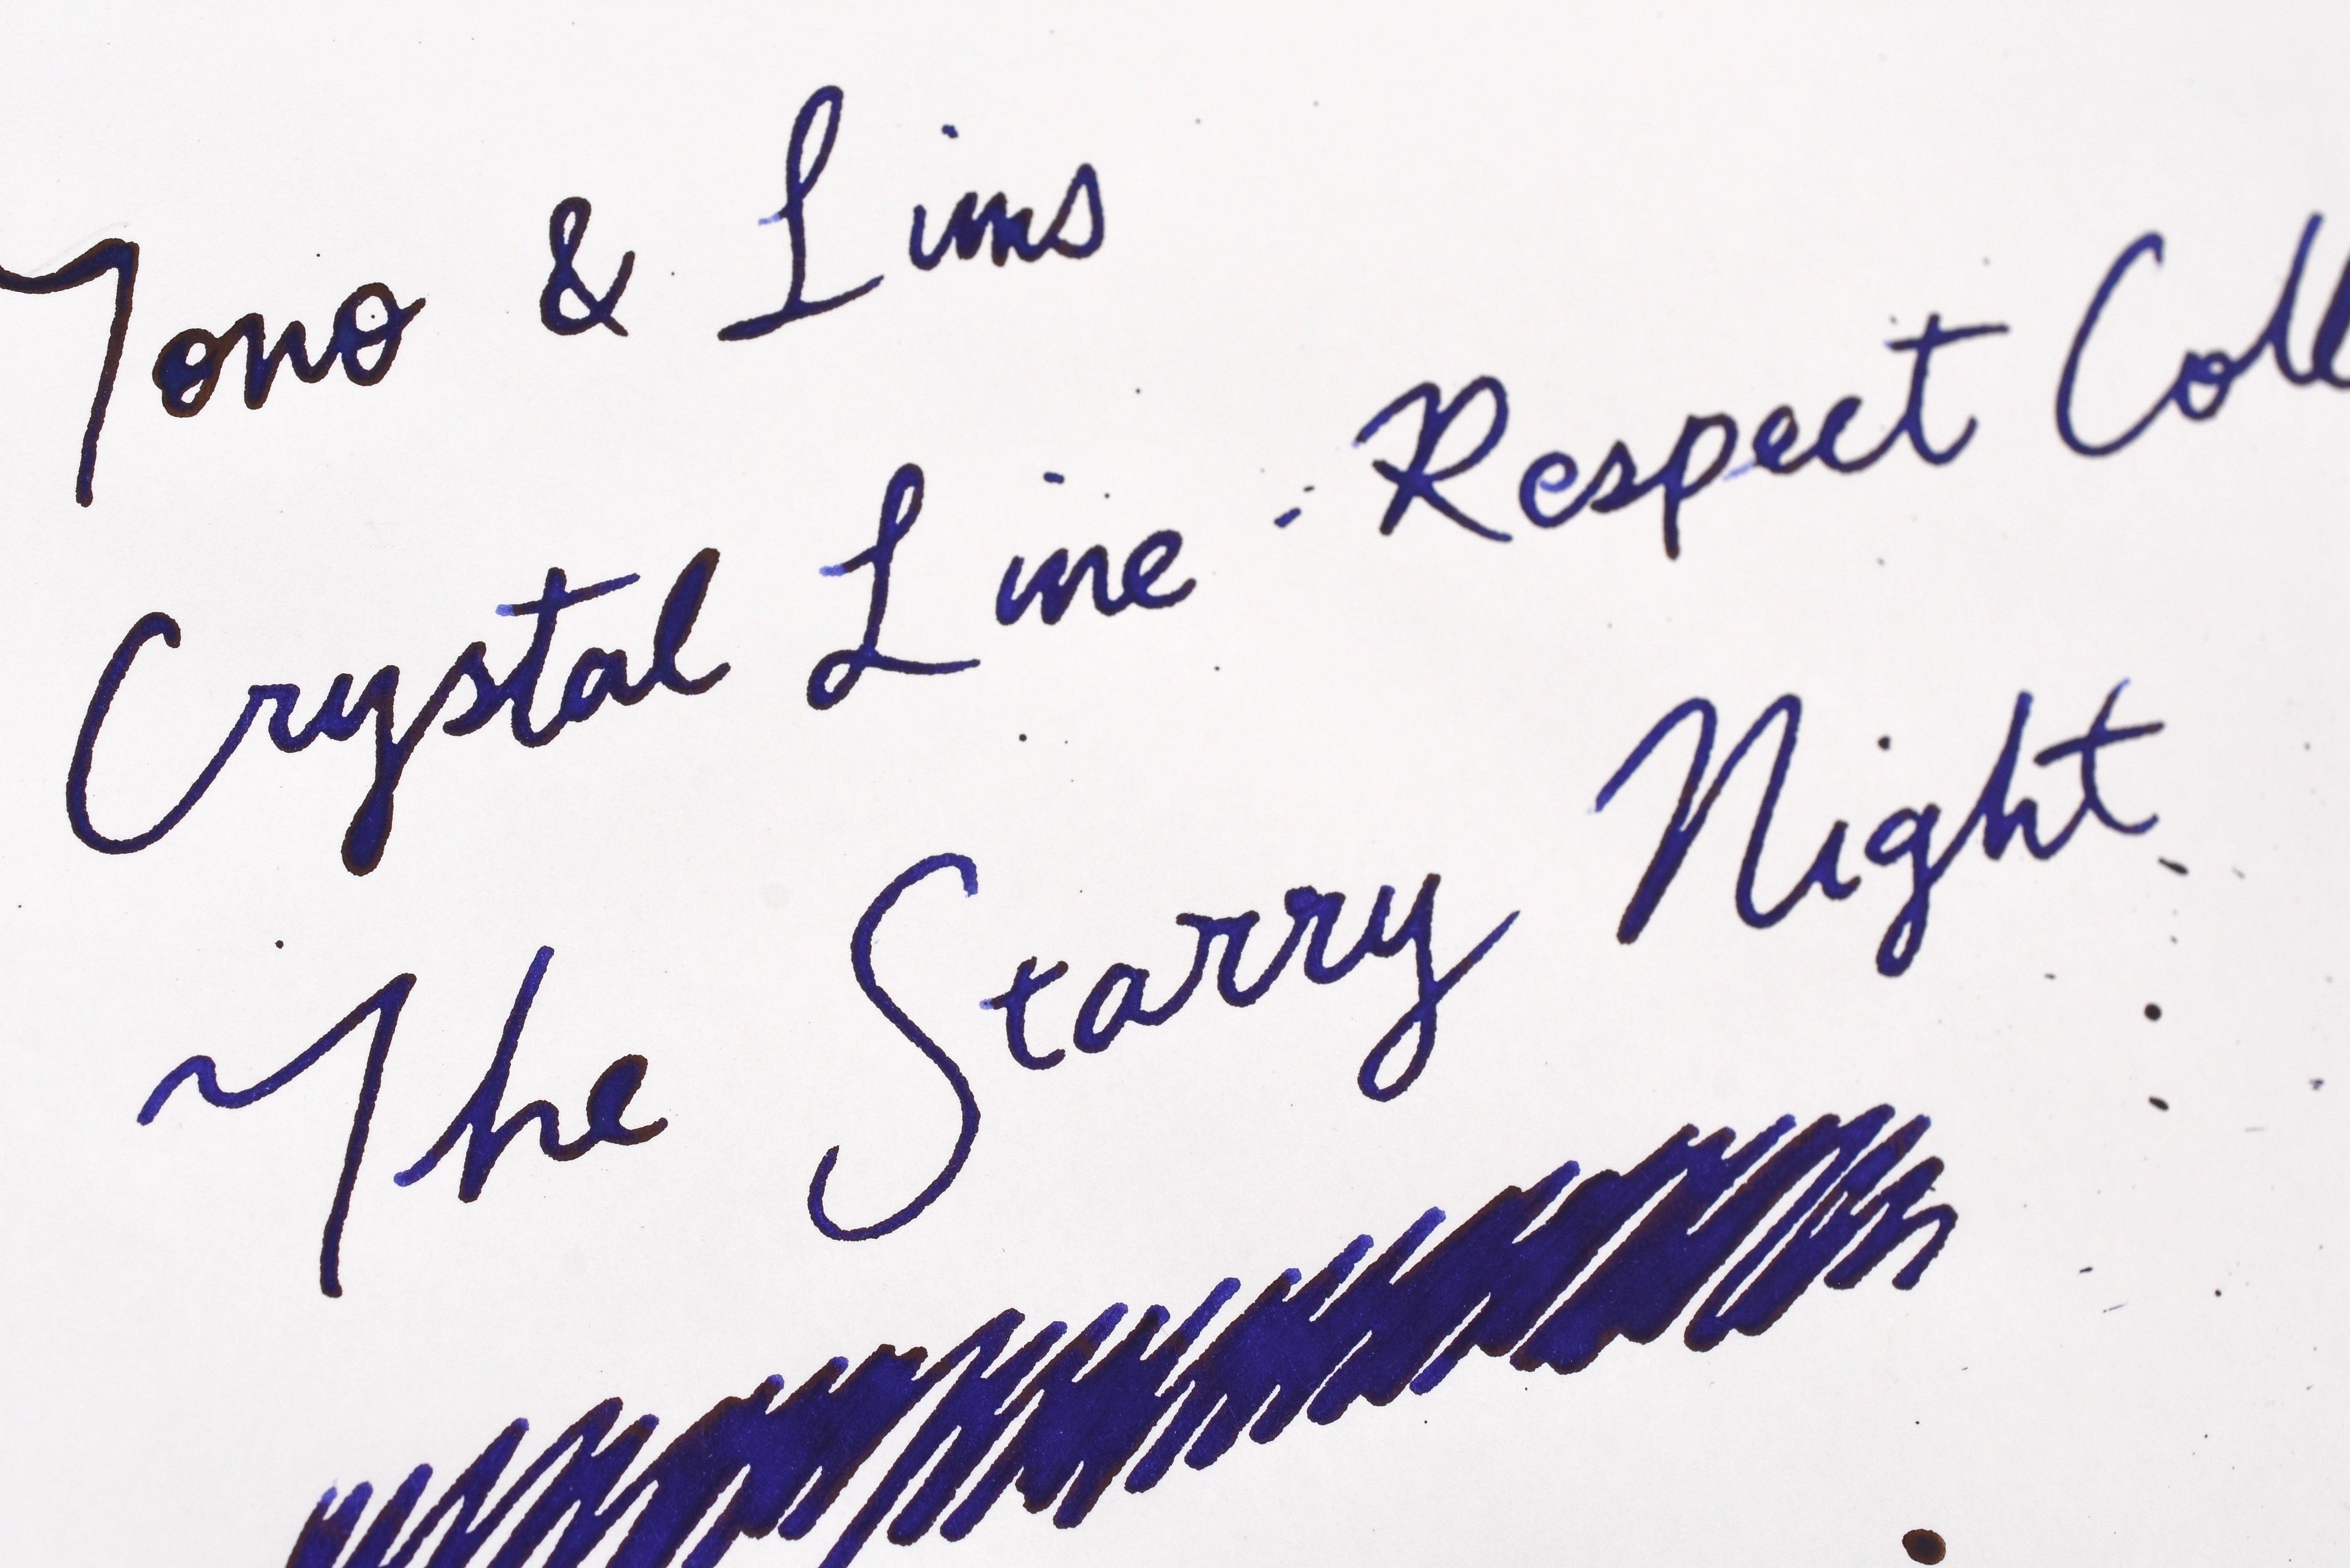 Tono & Lims
Crystal Line - Respect Coll
The Starry Night